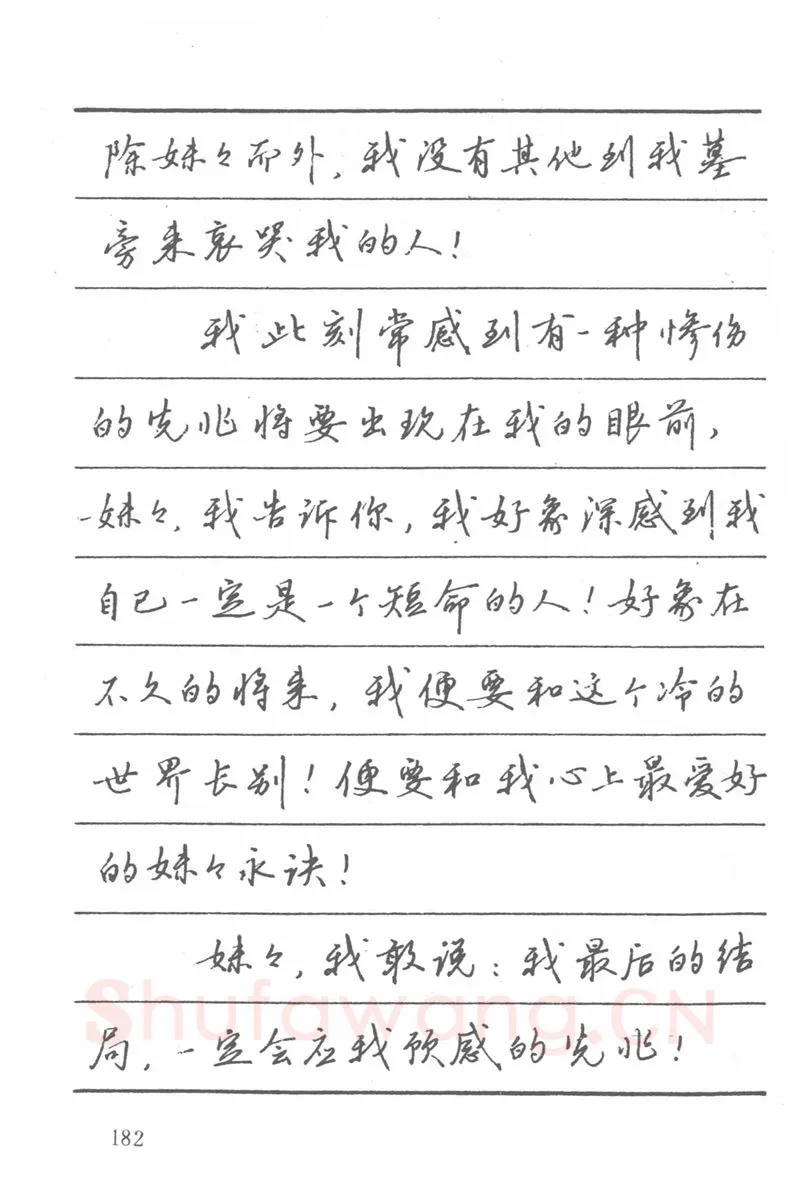 除妹々而外，我没有其他到我墓
旁来哀哭我的人！
我此刻常感到有一种惨伤
的先兆将要出现在我的眼前，
妹々，我告诉你，我好象深感到我
自己一定是一个短命的人！好象在
不久的将来，我便要和这个冷的
世界长别！便要和我心上最爱好
的妹々永诀！
妹々，我敢说：我最后的结
局，一定会应我预感的先兆！
Shufawang.CN
182